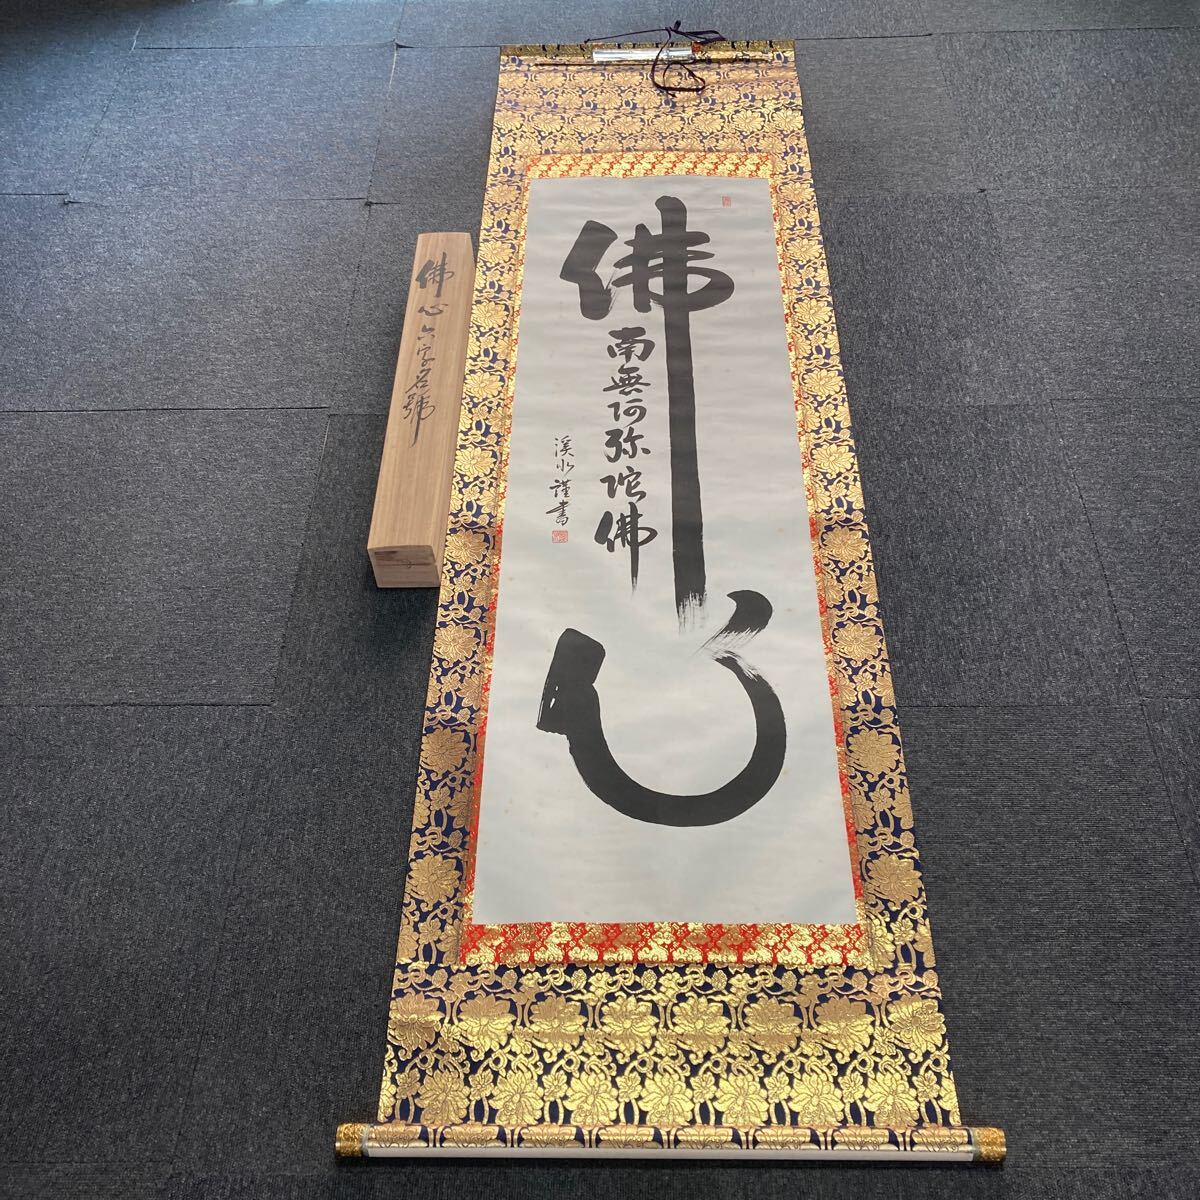 佛心
南無阿弥陀佛
溪水謹書
佛心六字名號